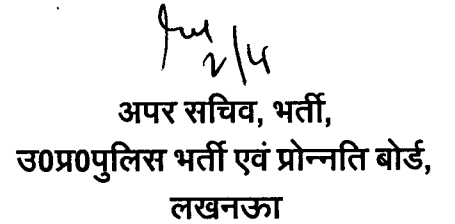 2/4
अपर सचिव, भर्ती,
उ0प्र0पुलिस भर्ती एवं प्रोन्नति बोर्ड,
लखनऊ